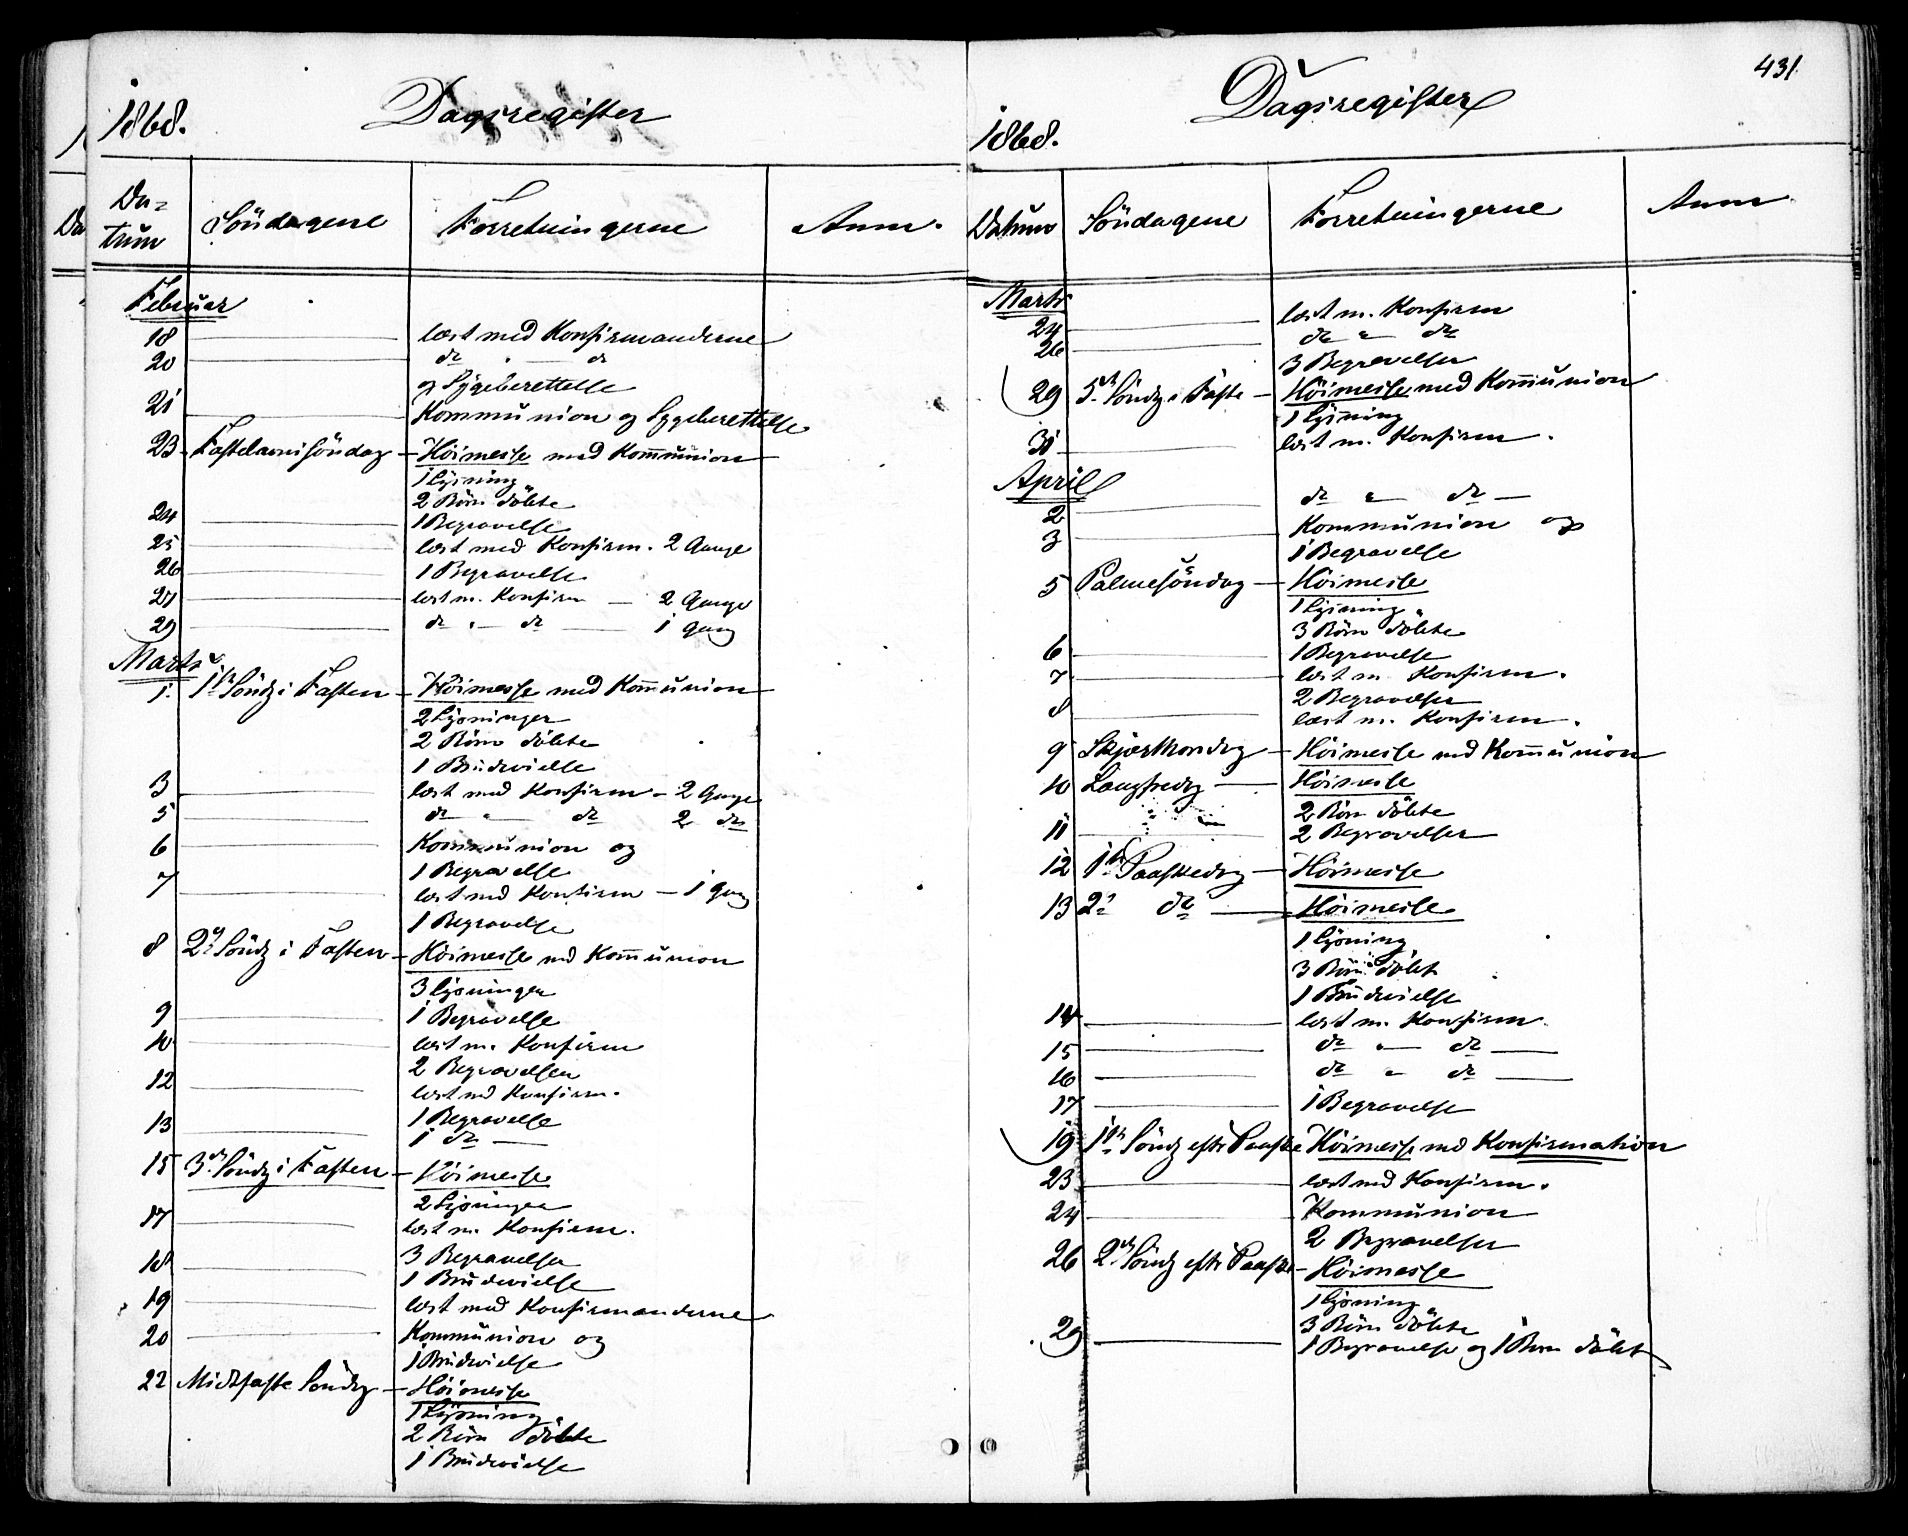 1868. Dagsregister
Da-
tum Söndagene Forretningerne Anm.
Februar
18 læst med Konfirmanderne
20 do " — do
og Sygeberettelse
21 Kommunion og Sygeberettelse
23 Fastelavnssöndag — Höimesse med Kommunion
1 Lysning
2 Börn döbte
24 1 Begravelse
25 læst med Konfirm. 2 Gange
26 1 Begravelse
27 læst m. Konfirm — 2 Gange
29 do " — do — 1 Gang
Marts
1. 1ste Söndg i Fasten — Höimesse med Kommunion
2 Lysninger
2 Börn döbte
1 Brudevielse
3 læst med Konfirm — 2 Gange
5 do " — do 2 do
6 Kommunion og
1 Begravelse
7 læst med Konfirm — 1 Gang
1 Begravelse
8 2den Söndg i Fasten — Höimesse md Kommunion
3 Lysninger
9 1 Begravelse
10 læst m. Konfirm
2 Begravelser
12 læst md Konfirm.
1 Begravelse
13 1 do —
15 3die Söndg i Fasten — Höimesse
2 Lysninger
17 læst m. Konfirm.
3 Begravelser
18 1 Brudevielse
19 læst med Konfirmanderne
20 Kommunion og
1 Brudevielse
22 Midtfaste Söndg — Höimesse
1 Lysning
2 Börn döbte
1 Brudevielse
431.
1868. Dagsregister
Datum Söndagene Forretningerne Anm.
Marts
24 læst m. Konfirm
26 do " do
3 Begravelser
29 5te Söndg i Faste — Höimesse med Kommunion
1 Lysning
31 læst m. Konfirm.
April
2 do " — do —
3 Kommunion og
1 Begravelse
5 Palmesöndag — Höimesse
1 Lysning
3 Börn döbte
6 1 Begravelse
7 læst m Konfirm.
2 Begravelser
8 læst m. Konfirm.
9 Skjærthorsdg — Höimesse med Kommunion
10 Langfredg — Höimesse
2 Börn döbte
11 2 Begravelser
12 1ste Paaskedg — Höimesse
13 2den do — Höimesse
1 Lysning
3 Börn döbt
1 Brudevielse
14 læst m. Konfirm.
15 do " — do —
16 do " do —
17 1 Begravelse
19 1ste Söndg efter Paaske Höimesse md Konfirmation
23 læst md Konfirm.
24 Kommunion
2 Begravelser
26 2den Söndg efter Paaske — Höimesse
1 Lysning
3 Börn döbte
29 1 Begravelse og 1 Barn döbt